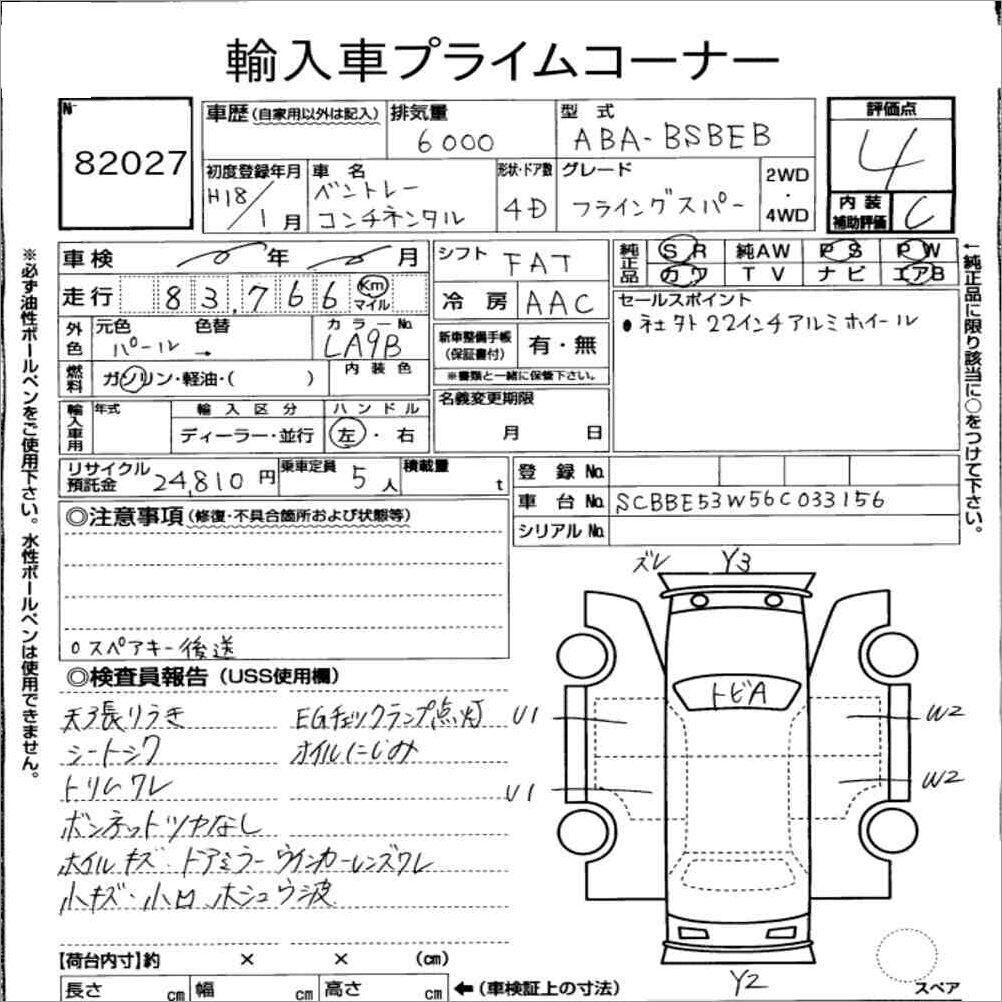 輸入車プライムコーナー
No. 82027
車歴(自家用以外は記入) 排気量 6000 型式 ABA-BSBEB 評価点 4
初度登録年月 H18/1月 車名 ベントレー コンチネンタル 形状・ドア数 4D グレード フライングスパー 2WD・4WD 内装補助評価 C
車検 年 月 シフト FAT 純正品 SR 純AW PS PW
カワ TV ナビ エアB
走行 83,766 Km マイル 冷房 AAC セールスポイント
・社外22インチアルミホイール
外色 元色 パール → 色替 カラーNo. LA9B 新車整備手帳(保証書付) 有・無
※書類と一緒に保管下さい。
燃料 ガソリン・軽油・( ) 内装色
名義変更期限 月 日
輸入車用 年式 輸入区分 ディーラー・並行 ハンドル 左・右
リサイクル預託金 24,810円 乗車定員 5人 積載量 t
登録No.
車台No. SCBBE53W56C033156
シリアルNo.
◎注意事項(修復・不具合箇所および状態等)
○スペアキー後送
◎検査員報告(USS使用欄)
天張りうき EGチェックランプ点灯
シートシワ オイルにじみ
トリムワレ
ボンネットツヤなし
ホイルキズ・ドアミラーウインカーレンズワレ
小キズ・小凹、ホシュウ波
ズレ Y3
トビA
U1 W2
U1 W2
Y2
スペア
【荷台内寸】約 × × (cm)
長さ cm 幅 cm 高さ cm ←(車検証上の寸法)
※必ず油性ボールペンをご使用下さい。水性ボールペンは使用できません。
←純正品に限り該当に○をつけて下さい。